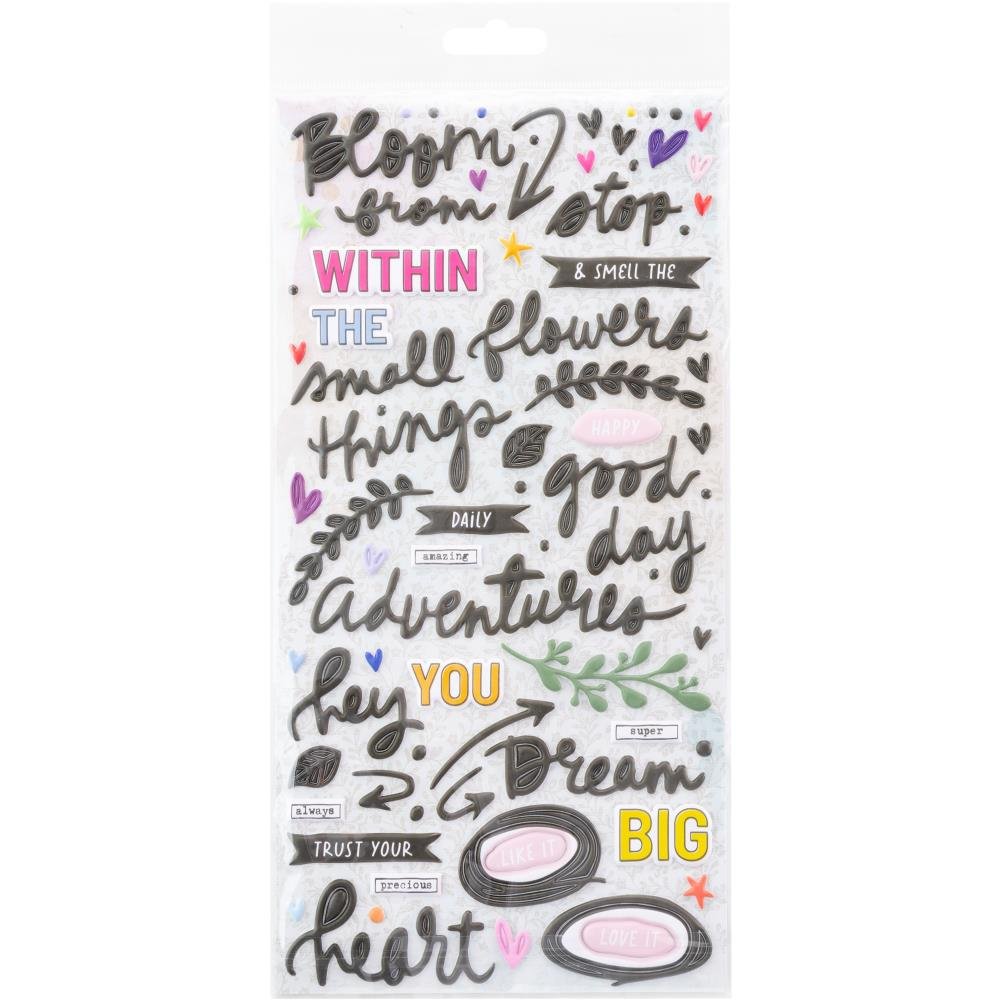 Bloom
from
stop
WITHIN
& SMELL THE
THE
flowers
small
things
HAPPY
good
DAILY
day
amazing
adventures
hey
YOU
super
Dream
always
BIG
TRUST YOUR
LIKE IT
precious
heart
LOVE IT